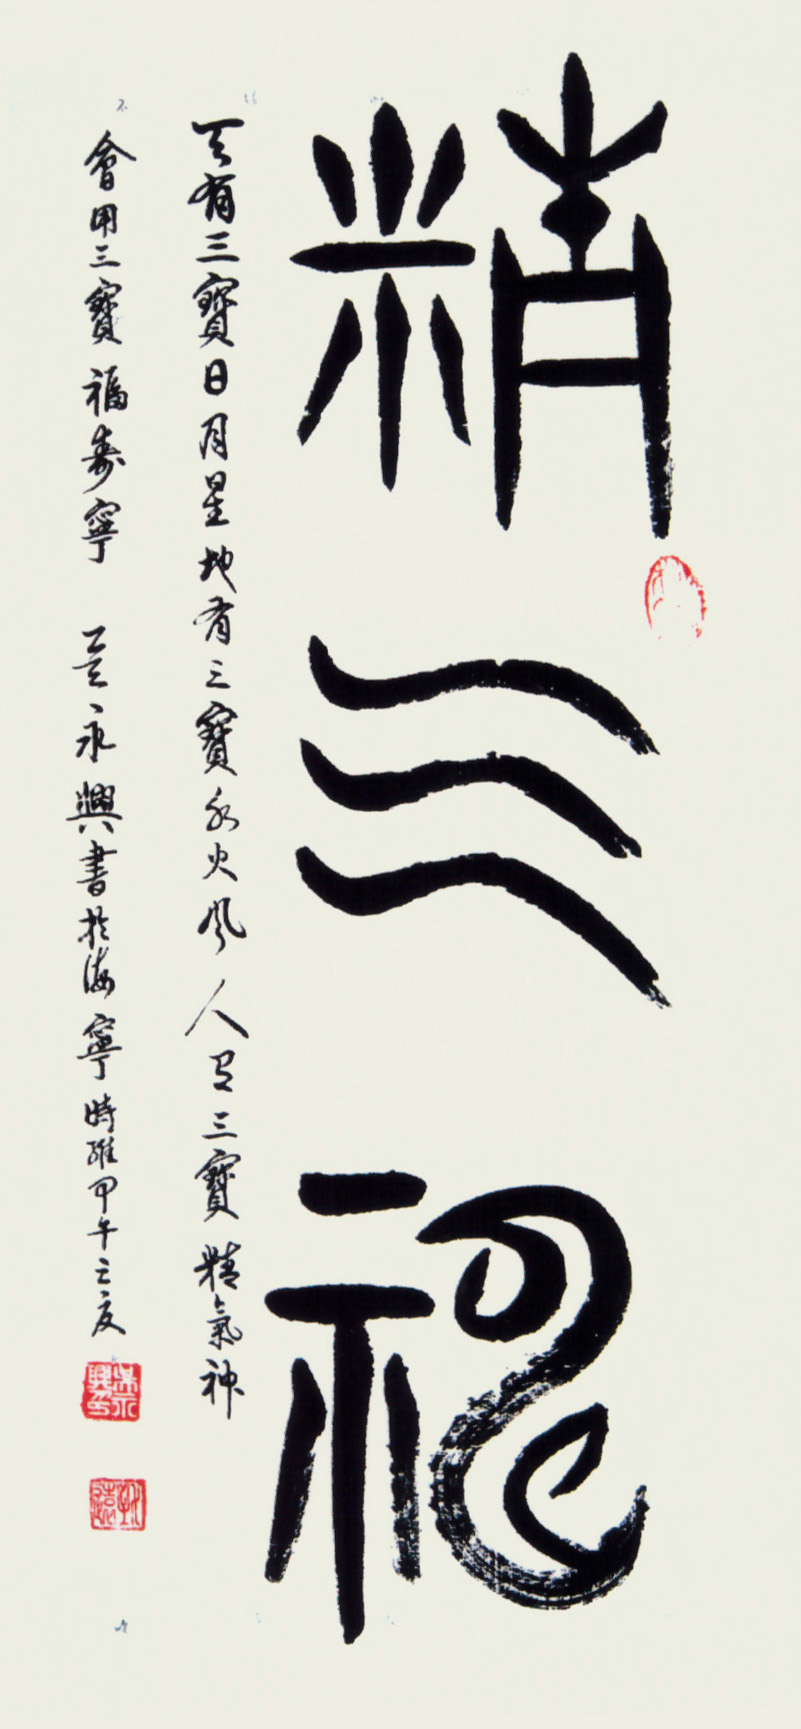 精气神
天有三寶日月星地有三寶水火風人有三寶精氣神
會用三寶福壽寧 吴永興書於海寧時維甲午之夏